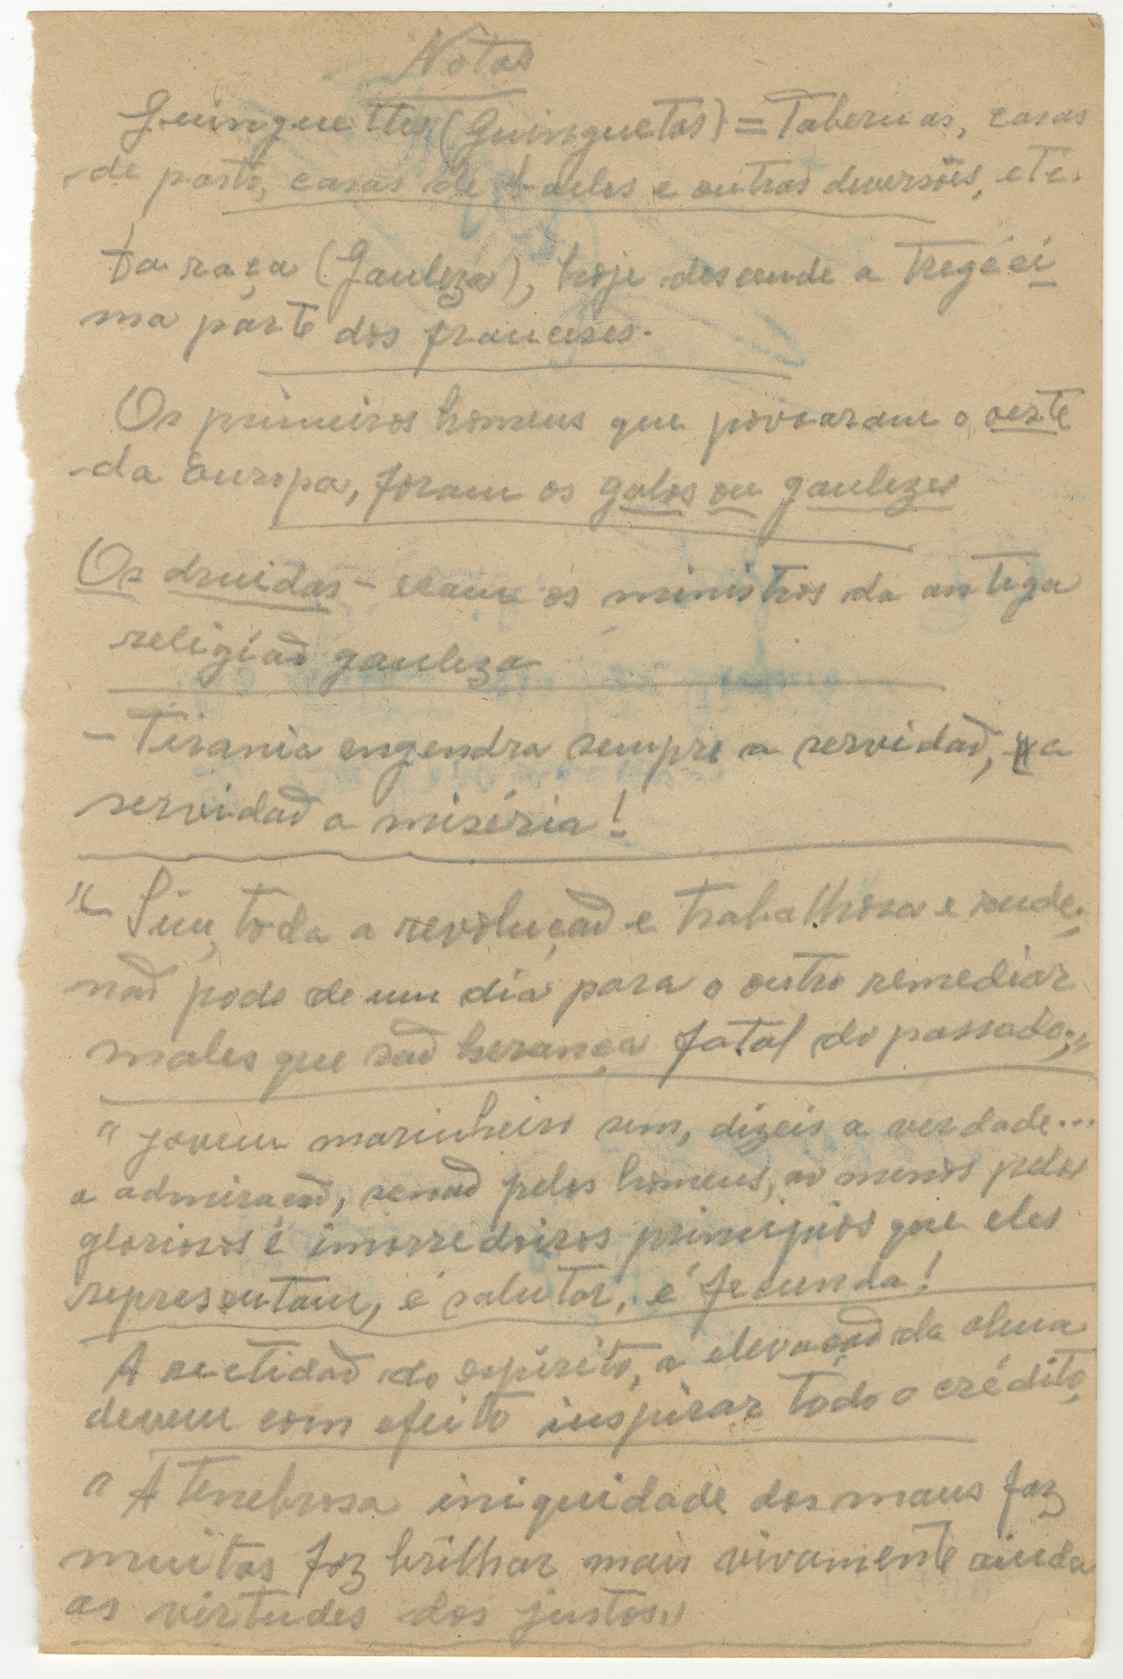 Notas
Guinguettes (Guinguetas) = Tabernas, casas
de pasto, casas de bailes e outras diversões, etc.
Da raça (Gauleza), hoje descende a tregéci
ma parte dos francêses.
Os primeiros homens que povoaram o oeste
da Europa, foram os galos ou gaulezes
Os druidas - eram os ministros da antiga
religiaõ gauleza
- Tirania engendra sempre a servidaõ, a
servidaõ a miséria!
"Sim, toda a revoluçaõ e trabalhosa e rude,
naõ pode de um dia para o outro remediar
males que saõ herança fatal do passado;"
"Jovem marinheiro sim, dizeis a verdade...
a admiraçaõ, senaõ pelos homens, ao menos pelos
gloriosos é imorredoiros principios que eles
representam, é salutar, é fecunda!
A rectidaõ do espirito, a elevaçaõ da alma
devem com efeito inspirar todo o crédito,
"A tenebrosa iniquidade dos maus faz
muitas foz brilhar mais vivamente ainda
as virtudes dos justos"